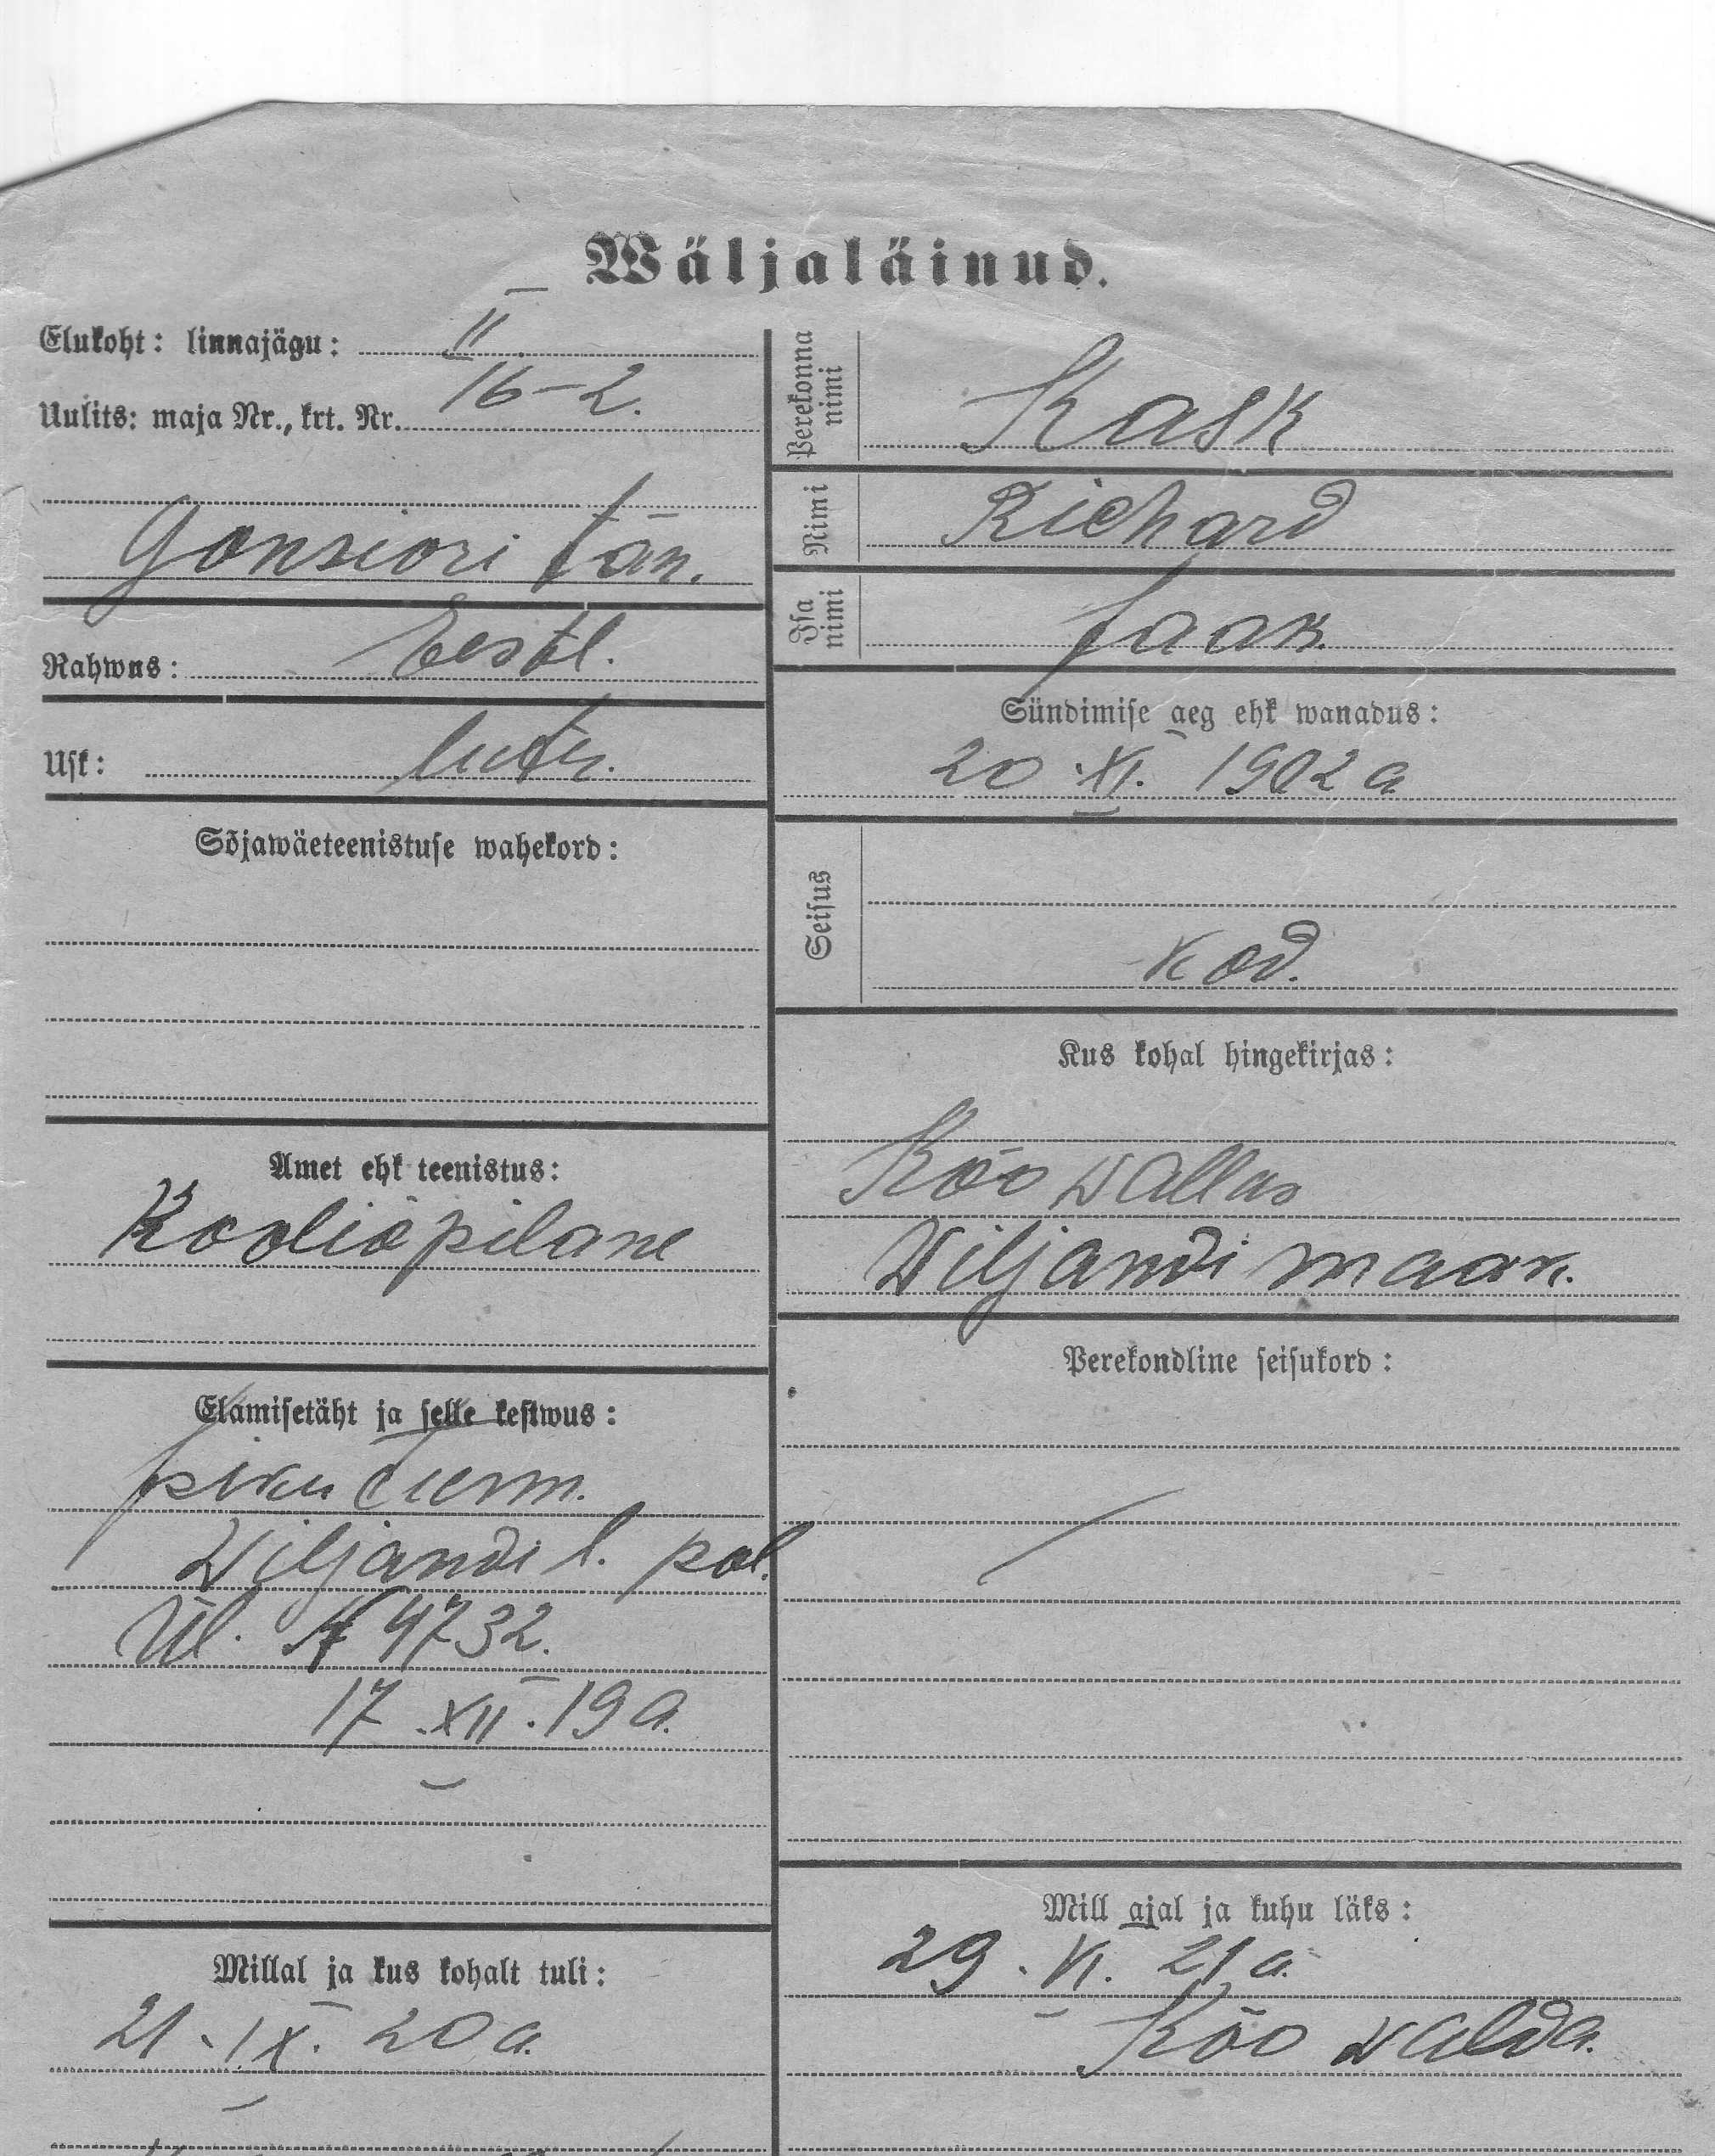 Wäljaläinud.
Elukoht: linnajägu: II
Uulits: maja Nr., krt. Nr. 16–2.
Gonsiori tän.
Rahwus: Eestl.
Usk: luter.
Sõjawäeteenistuse wahekord:
Amet ehk teenistus:
Kooliõpilane
Elamisetäht ja selle kestwus:
isiku tunn.
Wiljandi l. pol.
ül. № 4732.
17.XII.19 a.
Millal ja kus kohalt tuli:
21.IX.20 a.
Perekonna nimi Kask
Nimi Richard
Isa nimi Jaak.
Sündimise aeg ehk wanadus:
20.XI.1902 a
Seisus
kod.
Kus kohal hingekirjas:
Kõo wallas
Wiljandi maak.
Perekondline seisukord:
Mill ajal ja kuhu läks:
29.VI.21 a.
Kõo walda.